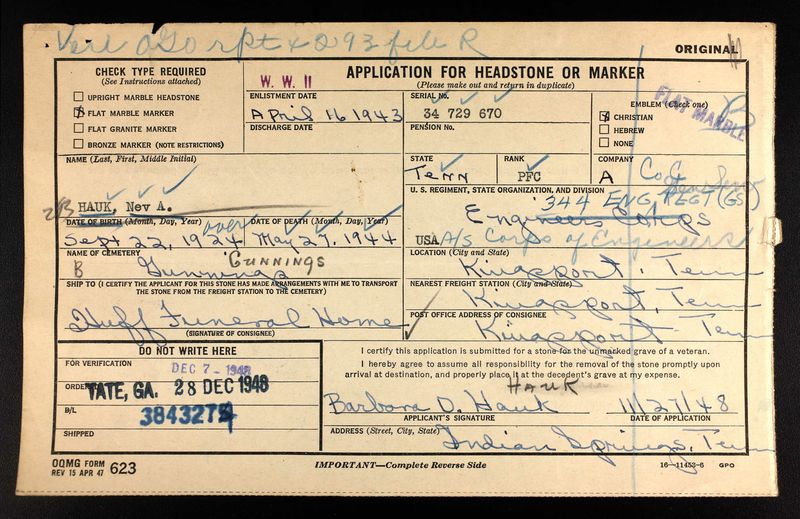 Veri OGO rpt + 293 file R
ORIGINAL
CHECK TYPE REQUIRED
(See Instructions attached)
UPRIGHT MARBLE HEADSTONE
FLAT MARBLE MARKER
FLAT GRANITE MARKER
BRONZE MARKER (NOTE RESTRICTIONS)
W. W. II
ENLISTMENT DATE
April 16 1943
DISCHARGE DATE
APPLICATION FOR HEADSTONE OR MARKER
(Please make out and return in duplicate)
SERIAL No.
34 729 670
PENSION No.
EMBLEM (Check one)
CHRISTIAN
HEBREW
NONE
FLAT MARBLE
NAME (Last, First, Middle Initial)
HAUK, Nev A.
STATE
Tenn
RANK
PFC
COMPANY
A Co A
U. S. REGIMENT, STATE ORGANIZATION, AND DIVISION
344 ENG REGT (GS)
Engineers Corps
USA A/S Corps of Engineers
DATE OF BIRTH (Month, Day, Year)
over
Sept 22, 1924
DATE OF DEATH (Month, Day, Year)
May 27, 1944
NAME OF CEMETERY
B Gunnings
GUNNINGS
LOCATION (City and State)
Kingsport, Tenn
SHIP TO (I CERTIFY THE APPLICANT FOR THIS STONE HAS MADE ARRANGEMENTS WITH ME TO TRANSPORT
THE STONE FROM THE FREIGHT STATION TO THE CEMETERY)
Huff Funeral Home
(SIGNATURE OF CONSIGNEE)
NEAREST FREIGHT STATION (City and State)
Kingsport, Tenn
POST OFFICE ADDRESS OF CONSIGNEE
Kingsport Tenn
DO NOT WRITE HERE
FOR VERIFICATION
DEC 7 - 1948
ORDERED
TATE, GA. 28 DEC 1948
B/L
3843275
SHIPPED
I certify this application is submitted for a stone for the unmarked grave of a veteran.
I hereby agree to assume all responsibility for the removal of the stone promptly upon
arrival at destination, and properly place it at the decedent's grave at my expense.
HAUK
Barbara D. Hauk
11/27/48
APPLICANT'S SIGNATURE
DATE OF APPLICATION
ADDRESS (Street, City, State)
Indian Springs, Tenn
OQMG FORM
REV 15 APR 47
623
IMPORTANT—Complete Reverse Side
16—11453-6 GPO